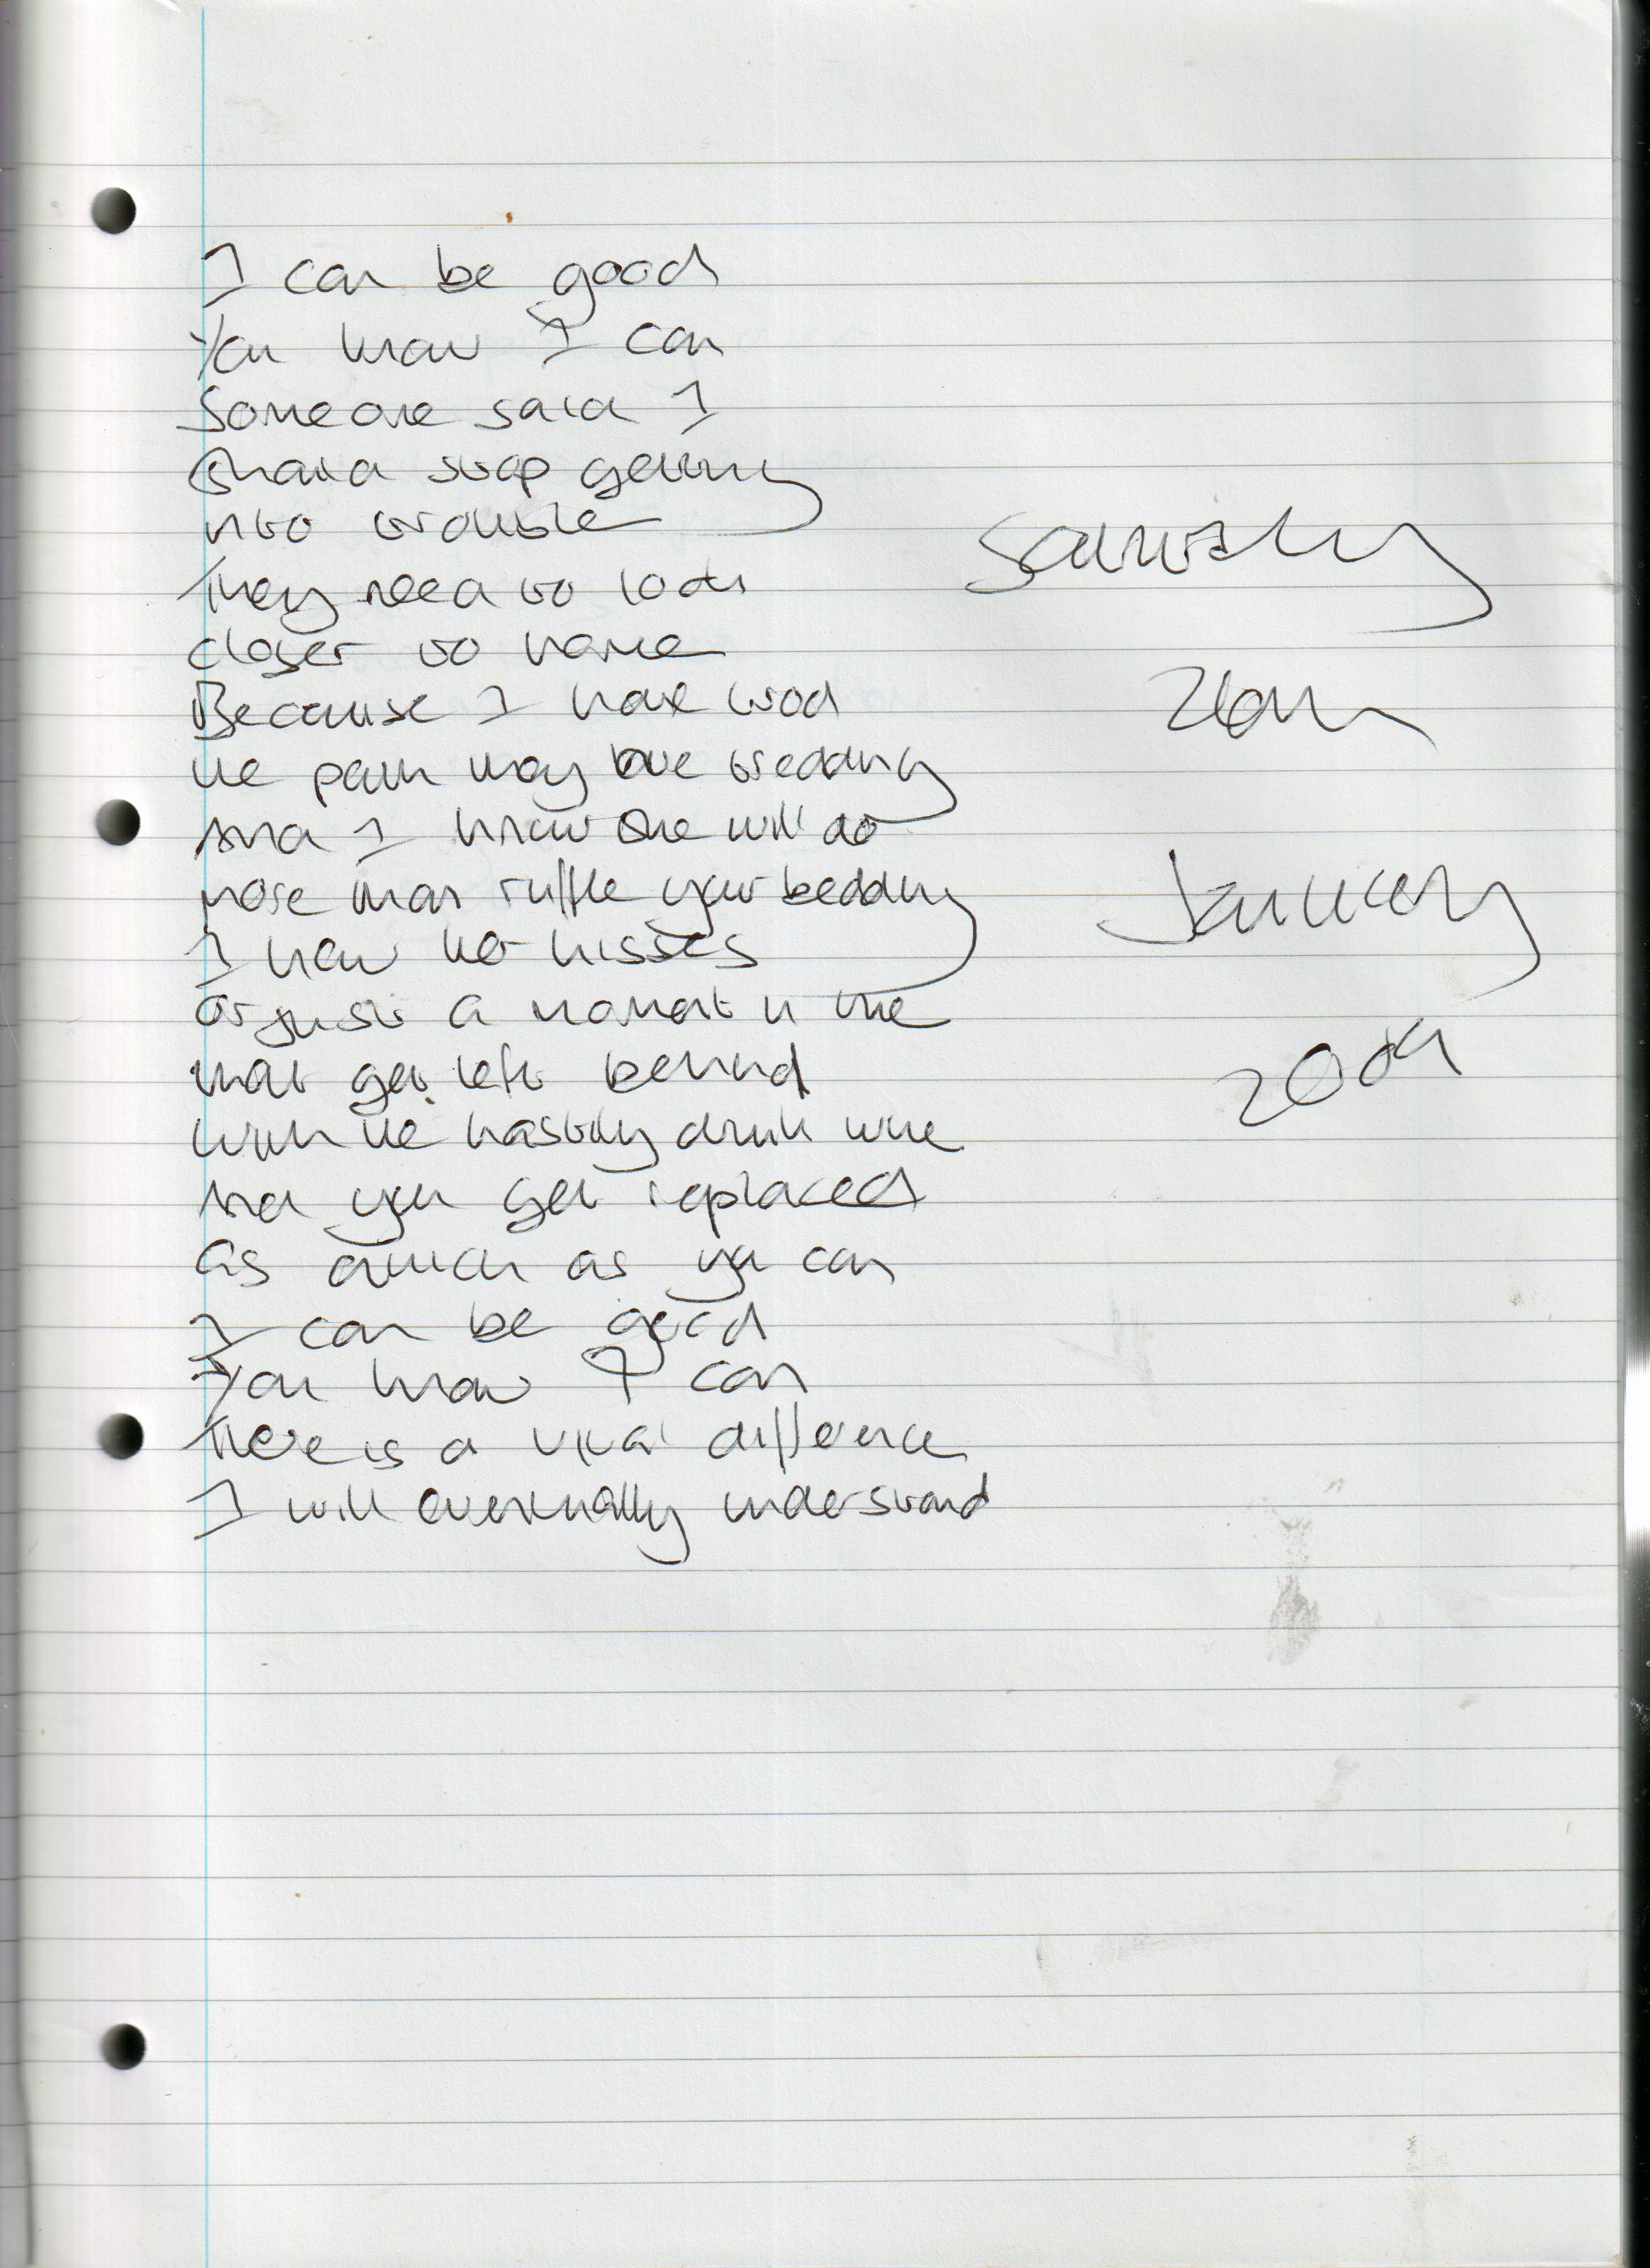 I can be good
You know I can
Someone said I
should stop getting
into trouble
They need to look
closer to home
Because I have trod
the path they are treading
And I know she will do
more than ruffle your bedding
I know the kisses
or just a moment in time
that get left behind
With the hastily drunk wine
And you get replaced
as quick as you can
I can be good
You know I can
There is a vital difference
I will eventually understand
Saturday
January
2009